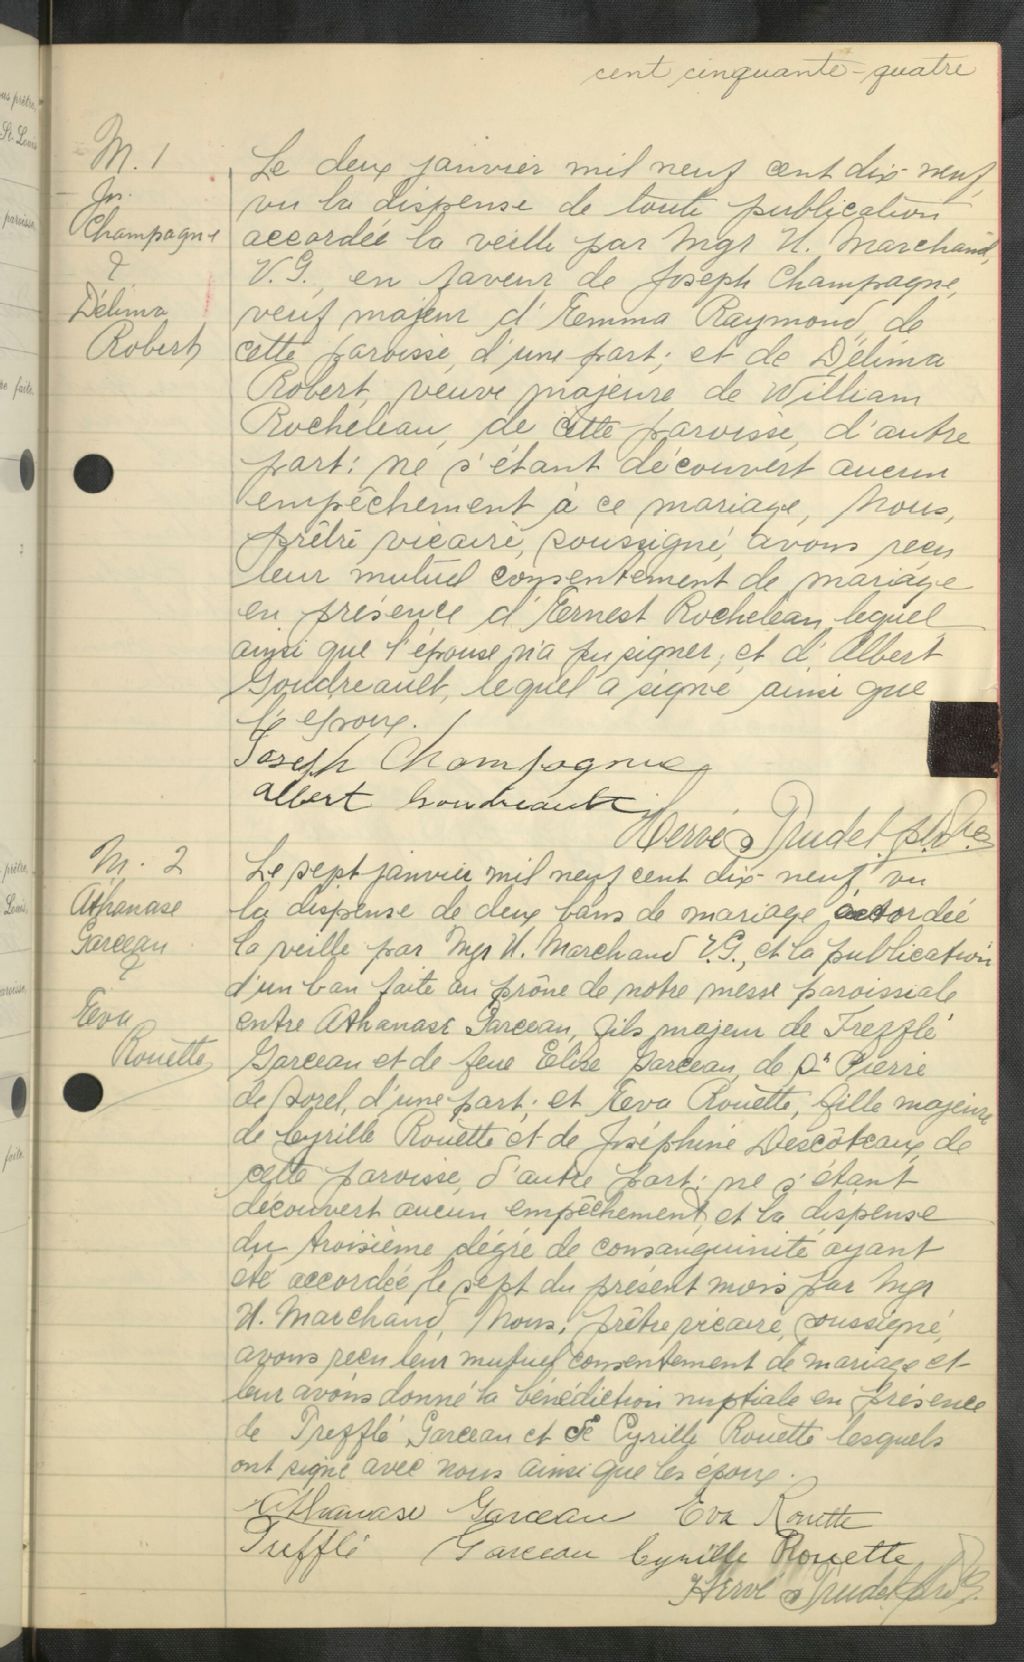 cent cinquante-quatre
M. 1
Jos.
Champagne
&
Délima
Robert
Le deux janvier mil neuf cent dix-neuf,
vu la dispense de toute publication
accordée la veille par Mgr U. Marchand,
V.G., en faveur de Joseph Champagne,
veuf majeur d'Emma Raymond, de
cette paroisse, d'une part; et de Délima
Robert, veuve majeure de William
Rocheleau, de cette paroisse, d'autre
part: ne s'étant découvert aucun
empêchement à ce mariage, Nous,
prêtre vicaire, soussigné, avons reçu
leur mutuel consentement de mariage
en présence d'Ernest Rocheleau, lequel
ainsi que l'épouse n'a pu signer, et d'Albert
Goudreault, lequel a signé ainsi que
l'époux.
Joseph Champagne
Albert Goudreault
Hervé Trudel, ptre
M. 2
Athanase
Garceau
&
Eva
Rouette
Le sept janvier mil neuf cent dix-neuf, vu
la dispense de deux bans de mariage accordée
la veille par Mgr U. Marchand V.G., et la publication
d'un ban faite au prône de notre messe paroissiale
entre Athanase Garceau, fils majeur de Trefflé
Garceau et de feue Elise Garceau, de St Pierre
de Sorel, d'une part; et Eva Rouette, fille majeure
de Cyrille Rouette et de Joséphine Descôteaux, de
cette paroisse, d'autre part: ne s'étant
découvert aucun empêchement, et la dispense
du troisième dégré de consanguinité ayant
été accordée le sept du présent mois par Mgr
U. Marchand, Nous, prêtre vicaire, soussigné,
avons reçu leur mutuel consentement de mariage et
leur avons donné la bénédiction nuptiale en présence
de Trefflé Garceau et de Cyrille Rouette lesquels
ont signé avec nous ainsi que les époux.
Athanase Garceau Eva Rouette
Trefflé Garceau Cyrille Rouette
Hervé Trudel, ptre